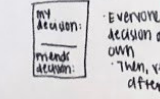 my
decision:
friends
decision:
· Everyone
decision
own
· Then,
after